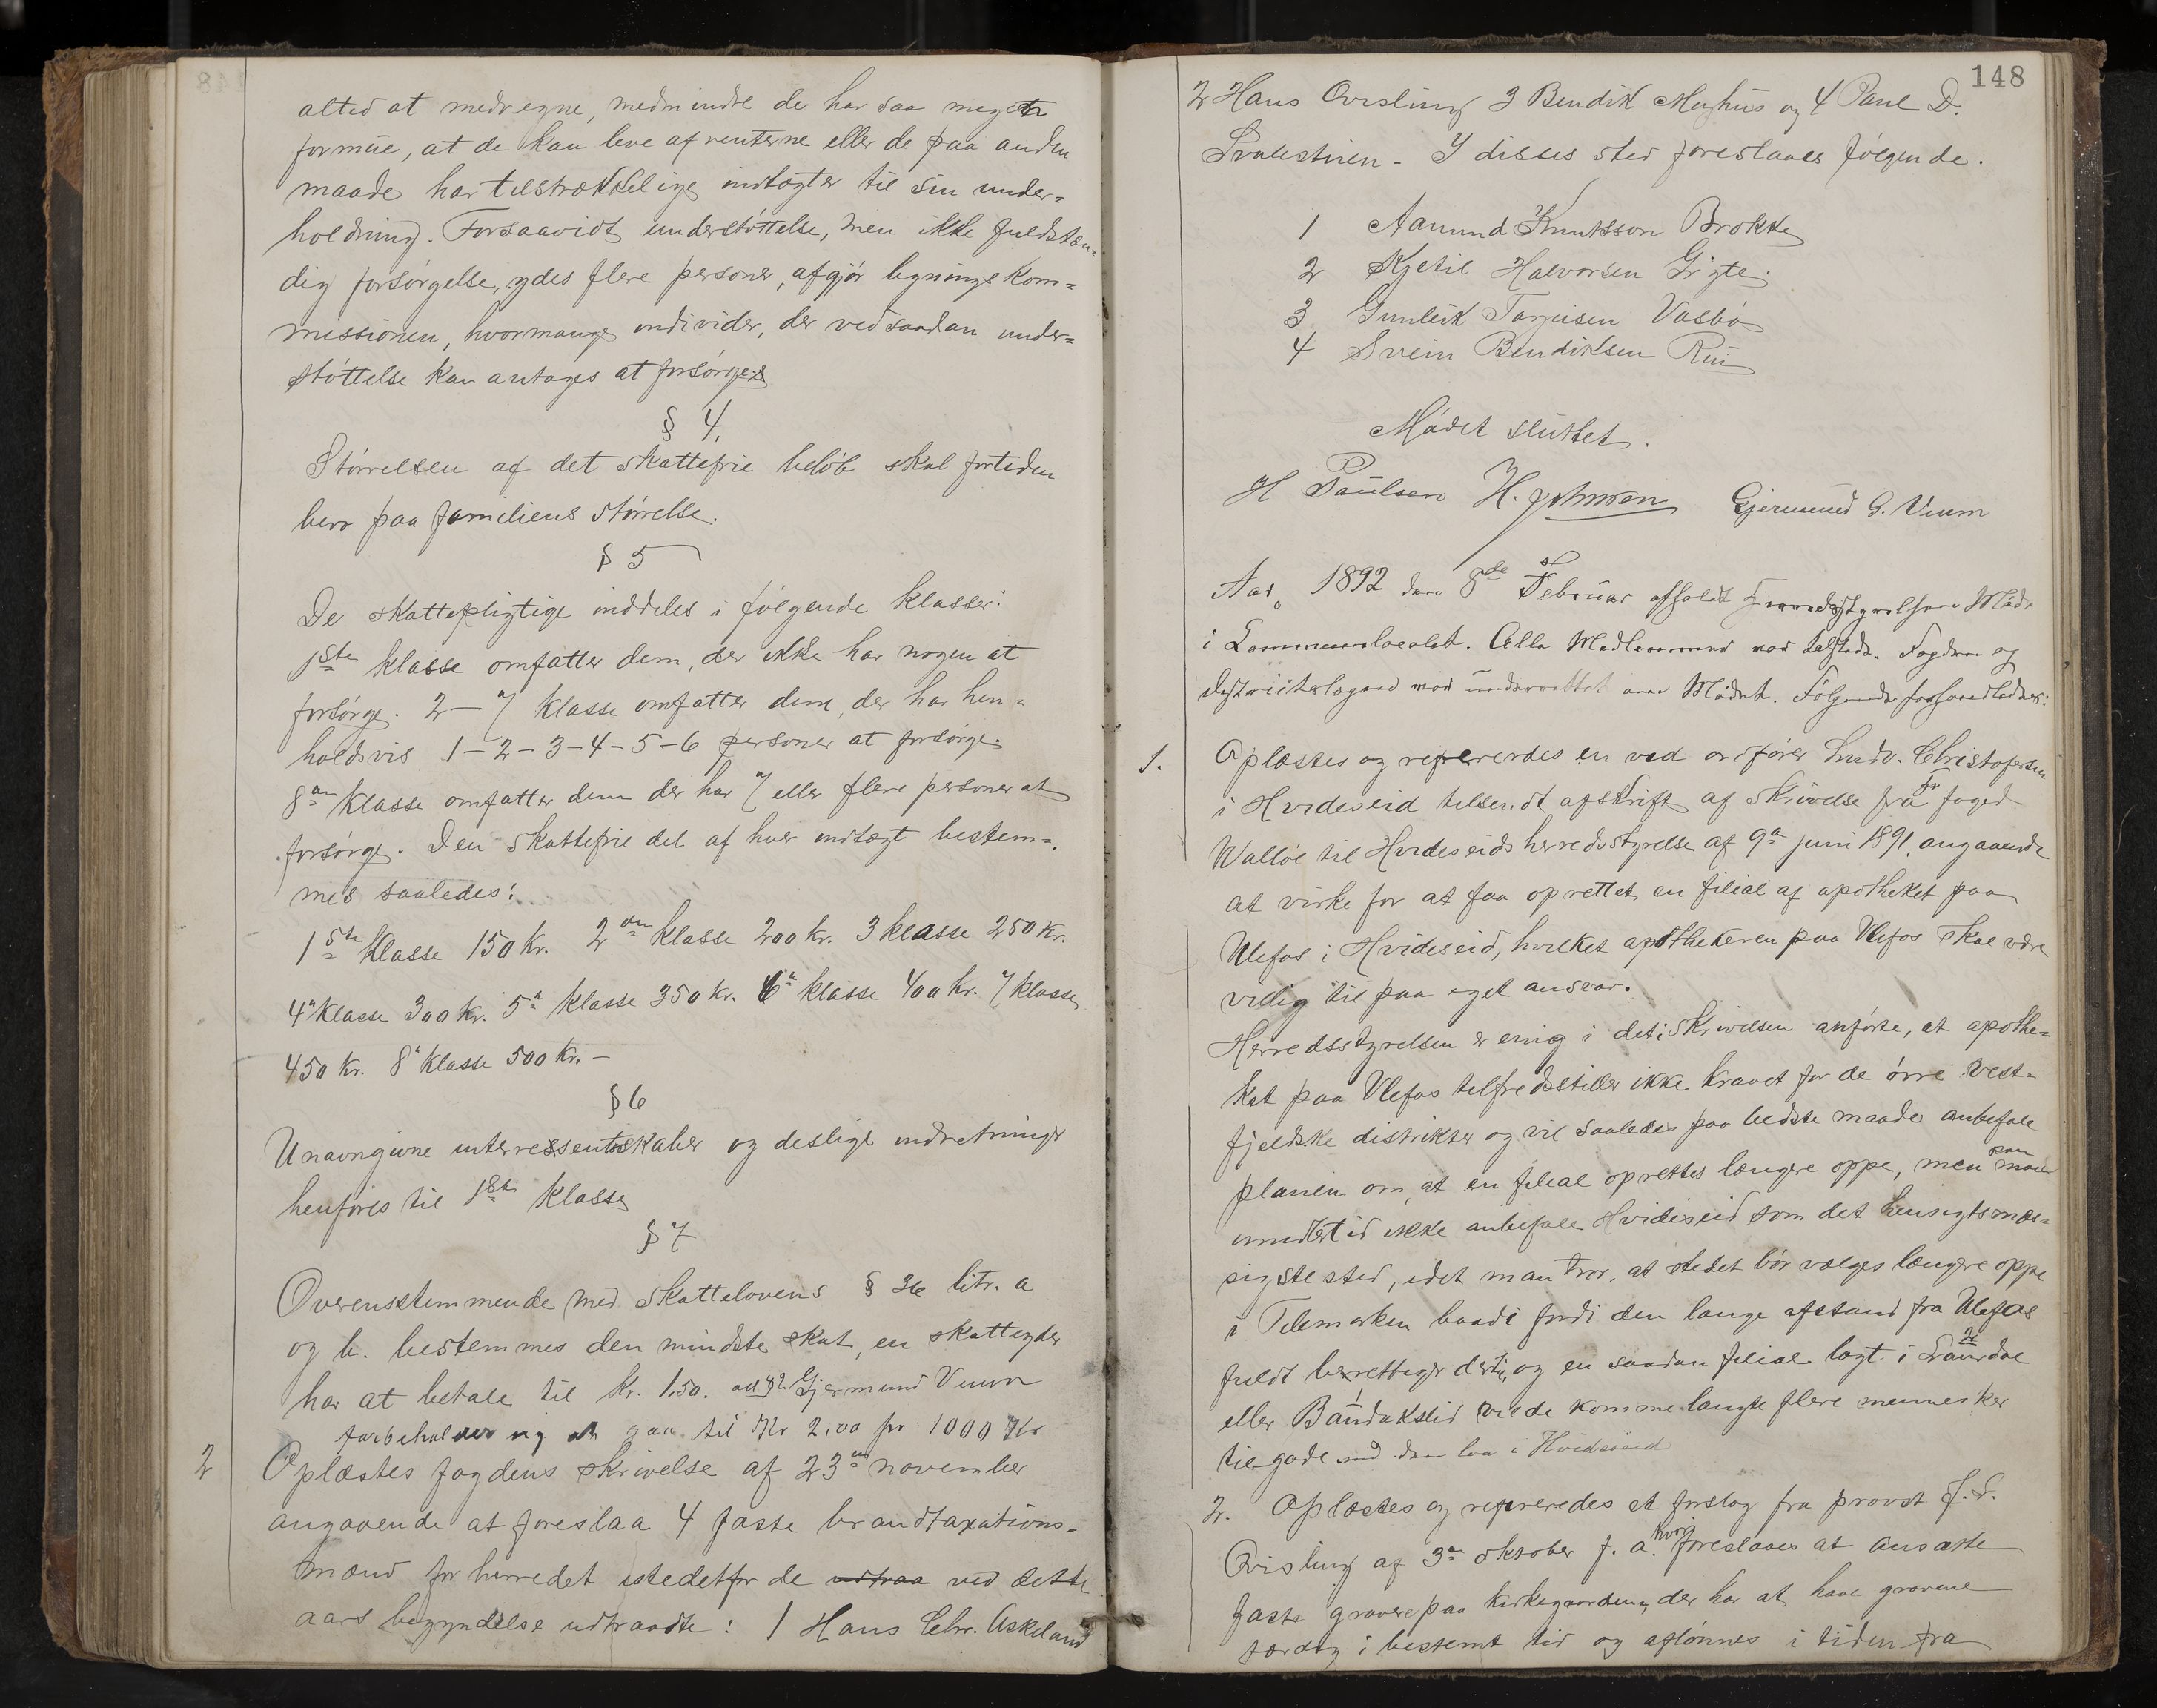 altid at medregne, medmindre de har saa megen
formue, at de kan leve af renterne eller de paa anden
maade har tilstrækkelige indtægter til sin under=
holdning. Forsaavidt understøttelse, men ikke fuldstæn=
dig forsørgelse, ydes flere personer, afgjør ligningskom=
missionen, hvormange individer, der ved saadan under=
støttelse kan antages at forsørges
§ 4.
Størrelsen af det skattefrie beløb skal fortiden
bero paa familiens størrelse.
§ 5
De skattepligtige inddeles i følgende klasser:
1ste klasse omfatter dem, der ikke har nogen at
forsørge. 2 – 7 klasse omfatter dem, der har hen=
holdsvis 1 – 2 – 3 – 4 – 5 – 6 personer at forsørge.
8de klasse omfatter dem der har 7 eller flere personer at
forsørge. Den skattefrie del af hver indtægt bestem=
mes saaledes:
1ste klasse 150 kr. 2den klasse 200 kr. 3 klasse 250 kr.
4 klasse 300 kr. 5 klasse 350 kr. 6 klasse 400 kr. 7 klasse
450 kr. 8 klasse 500 kr. –
§ 6
Unavngivne interressentskaber og deslige indretninger
henføres til 1ste klasse
§ 7
Overensstemmende med skattelovens § 36 litr. a
og b. bestemmes den mindste skat, en skatteyder
har at betale til kr. 1.50. Gjermund Veum
forbeholder sig at gaa til Kr 2,00 pr 1000 Kr
2 Oplæstes fogdens skrivelse af 23 november
angaaende at foreslaa 4 faste brandtaxations=
mænd for herredet istedetfor de ved dette
aars begyndelse udtraadte: 1 Hans Chr. Askeland
148
2 Hans Qvisling 3 Bendik Moghus og 4 Paul D.
Svalestuen – I disses sted foreslaaes følgende.
1 Aanund Knutsson Brokke
2 Kjetil Halvorsen Grgte
3 Gunleik Tarjeisen Vasbø
4 Svein Bendiksen Rui
Mødet sluttet.
H Paulsen H. Johnsen Gjermund G. Veum
Aar 1892 den 8de Februar afholdt Herredsstyrelsen Møde
i Kommunelocalet. Alle Medlemmer var tilstede. Fogden og
distriktslægen var underrettet om Mødet. Følgende forhandledes:
1. Oplæstes og refererdes en ved ordfører Ludv. Christofersen
i Hvideseid tilsendt afskrift af skrivelse fra Hr foged
Walløe til Hvideseids herredsstyrelse af 9 juni 1891 angaaende
at virke for at faa oprettet en filial af apotheket paa
Ulefos i Hvideseid, hvilket apothekeren paa Ulefos skal være
villig til paa eget ansvar.
Herredsstyrelsen er enig i det i skrivelsen anførte, at apothe=
ket paa Ulefos tilfredsstiller ikke kravet for de øvre vest=
fjeldske distrikter og vil saaledes paa bedste maade anbefale
planen om, at en filial oprettes længere oppe, men man
imidlertid ikke anbefale Hvideseid som det hensigtsmæs=
sigste sted, idet man tror, at stedet bør vælges længere oppe
i Telemarken baade fordi den lange afstand fra Ulefos
fuldt berettiger dertil, og en saadan filial lagt i Laurdal
eller Bandakslid vilde komme langt flere mennesker
tilgode end den laa i Hvideseid
2. Oplæstes og refereredes et forslag fra provst J. L.
Qvisling af 3 oktober f. a. hvori foreslaaes at ansætte
faste gravere paa kirkegaardene, der har at have gravene
færdig i bestemt tid og aflønnes i tiden fra